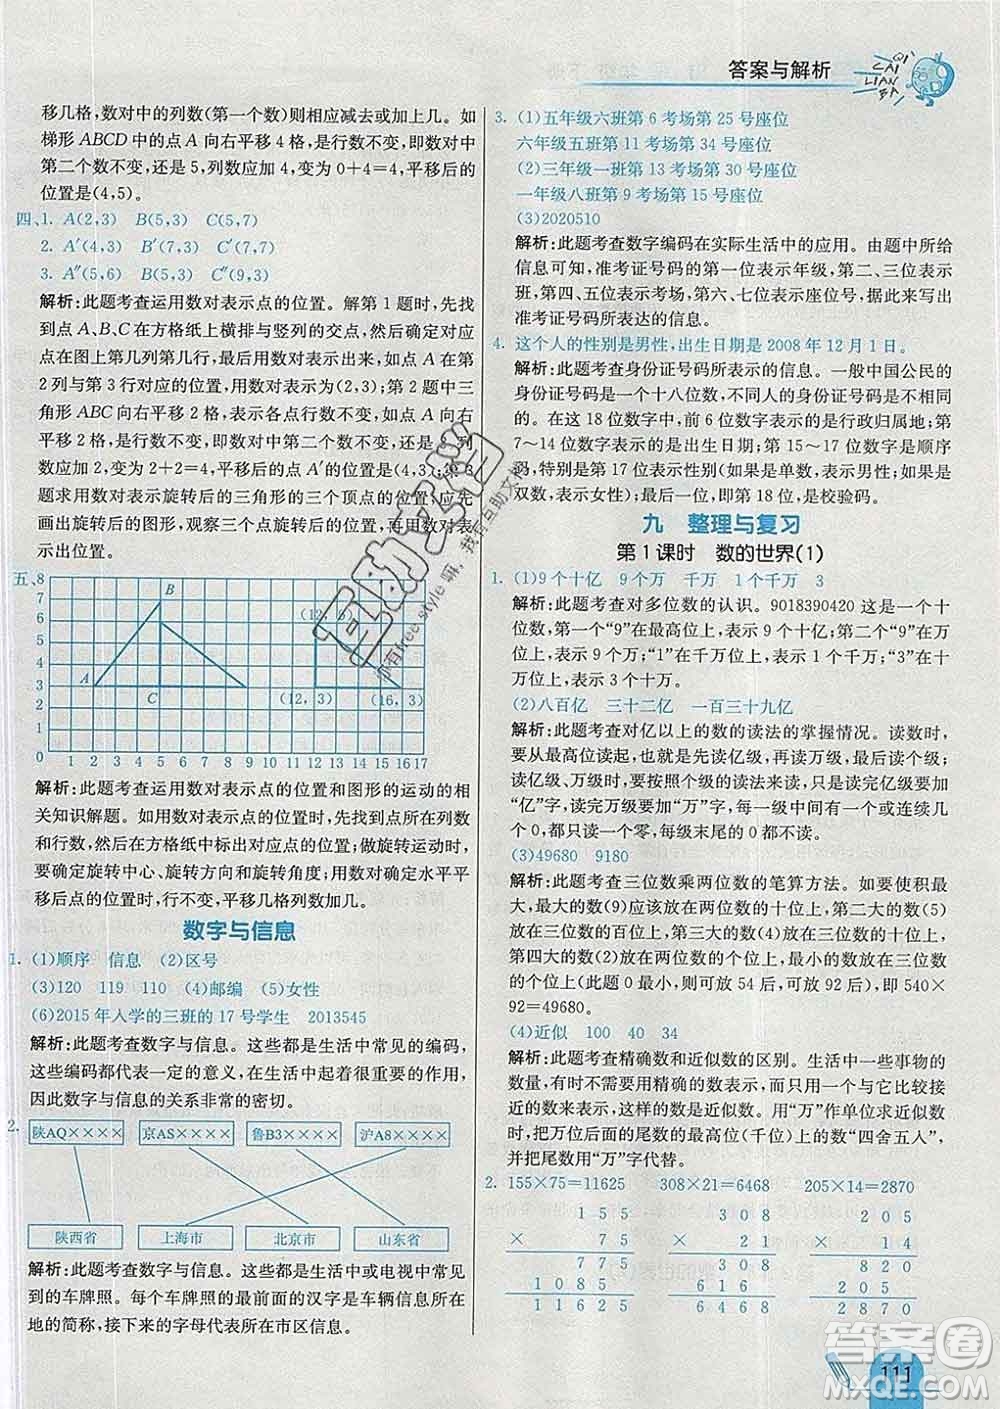 答案与解析
QI CAI LIAN BA
移几格,数对中的列数(第一个数)则相应减去或加上几。如
梯形 ABCD 中的点 A 向右平移 4 格,是行数不变,即数对中
第二个数不变,还是 5,列数应加 4,变为 0+4=4,平移后的
位置是(4,5)。
四、1. A(2,3) B(5,3) C(5,7)
2. A′(4,3) B′(7,3) C′(7,7)
3. A″(5,6) B″(5,3) C″(9,3)
解析:此题考查运用数对表示点的位置。解第 1 题时,先找
到点 A、B、C 在方格纸上横排与竖列的交点,然后确定对应
点在图上第几列第几行,最后用数对表示出来,如点 A 在第
2 列与第 3 行对应的位置,用数对表示为(2,3);第 2 题中三
角形 ABC 向右平移 2 格,表示各点行数不变,列数加 2,如
点 A 向右平移 2 格,行数不变,即数对中第二个数不变,还
是 3,列数应加 2,变为 2+2=4,平移后的位置是(4,3);第 3
题求用数对表示旋转后的三角形的三个顶点的位置,应先
画出旋转后的图形,观察三个点的位置,再用数对分别表
示出位置。
五、8
7
6
5
4
3
2
1
0
B
A
C
(12,5)
(12,3)
(16,3)
1 2 3 4 5 6 7 8 9 10 11 12 13 14 15 16 17
解析:此题考查运用数对表示点的位置和图形的运动的相
关知识解题。如用数对表示点的位置时,先找到点的列数
和行数,在方格纸中标出对应点的位置;做旋转运动时,
要确定旋转中心、旋转方向和旋转角度;用数对确定水平平
移后点的位置时,行不变,平移几格列数加几。
数字与信息
1. (1)顺序 信息 (2)区号
(3)120 119 110 (4)邮编 (5)女性
(6)2015 年入学的三班的 17 号学生 2013545
解析:此题考查数字与信息。这些都是生活中常见的编码,
这些编码都代表一定的意义,在生活中起着很大的作用,
因此数字与信息的关系非常的密切。
2. 陕AQ×××× 京AS×××× 鲁B3×××× 沪A8××××
陕西省 上海市 北京市 山东省
解析:此题考查数字与信息。这些都是生活中或电视中常见
到的车牌照。每个车牌照的最前面的汉字是车辆信息所在
地的简称,接下来的字母代表所在市区信息。
3. (1)五年级六班第 6 考场第 25 号座位
六年级五班第 11 考场第 34 号座位
(2)三年级一班第 13 考场第 31 号座位
一年级八班第 9 考场第 15 号座位
(3)2020510
解析:此题考查数字编码在实际生活中的应用。由题中所给
信息可知,准考证号码的第一位表示年级,第二、三位表示
班,第四、五位表示考场,第六、七位表示座位号,据此可写出
准考证号码所表达的信息。
4. 这个人的性别是男性,出生日期是 2008 年 12 月 1 日。
解析:此题考查身份证号码所表示的信息。一般中国公民的
身份证号码是一个十八位数,不同人的身份证号码是不相同
的。在这 18 位数字中,前 6 位数字表示的是行政归属地;第
7~14 位数字表示的是出生日期;第 15~17 位数字是顺序
码,特别是第 17 位表示性别(如果是单数,表示男性;如果是
双数,表示女性);最后一位,即第 18 位,是校验码。
九 整理与复习
第 1 课时 数的世界(1)
1. (1)9 个十亿 9 个万 千万 1 个千万 3
解析:此题考查对多位数的认识。9018390420 这是一个十
位数,第一个“9”在最高位上,表示 9 个十亿;第二个“9”在万
位上,表示 9 个万;“1”在千万位上,表示 1 个千万;“3”在十
万位上,表示 3 个十万。
(2)八百亿 三十二亿 一百三十九亿
解析:此题考查对亿以上的数的读法的掌握情况。读数时,
要从最高位读起,也就是先读亿级,再读万级,最后读个级;
读亿级、万级时,要按照个级的读法来读,只是读完亿级要加
“亿”字,读完万级要加“万”字,数位中有一个 0 或连续几个
0,都只读一个零,每级末尾的 0 都不读。
(3)49680 9180
解析:此题考查三位数乘两位数的笔算方法。如要使积最
大,最大的数(9)应该放在两位数的十位上,第二大的数(5)
应放在三位数的百位上,第三大的数(4)放在三位数的十位上,
第四大的数(2)放在两位数的个位上,最小的数(0)放在三位数
的个位上,这时的积最大,则可放 54 后,可放 92 后,即 540×
92=49680。
(4)近似 100 40 34
解析:此题考查精确数和近似数的区别。生活中一些事物的
数量,有时不用精确的数表示,而用一个与它比较接近的
数来表示,这样的数是近似数。用“万”作单位求近似数
时,把万位后面的尾数的最高位(千位)上的数“四舍五入”,
并把尾数用“万”字代替。
2. 155×75=11625 308×21=6468 205×14=2870
1 5 5 3 0 8 2 0 5
× 7 5 × 2 1 × 1 4
7 7 5 3 0 8 8 2 0
1 0 8 5 6 1 6 2 0 5
1 1 6 2 5 6 4 6 8 2 8 7 0
111
答案圈
MXQE.COM